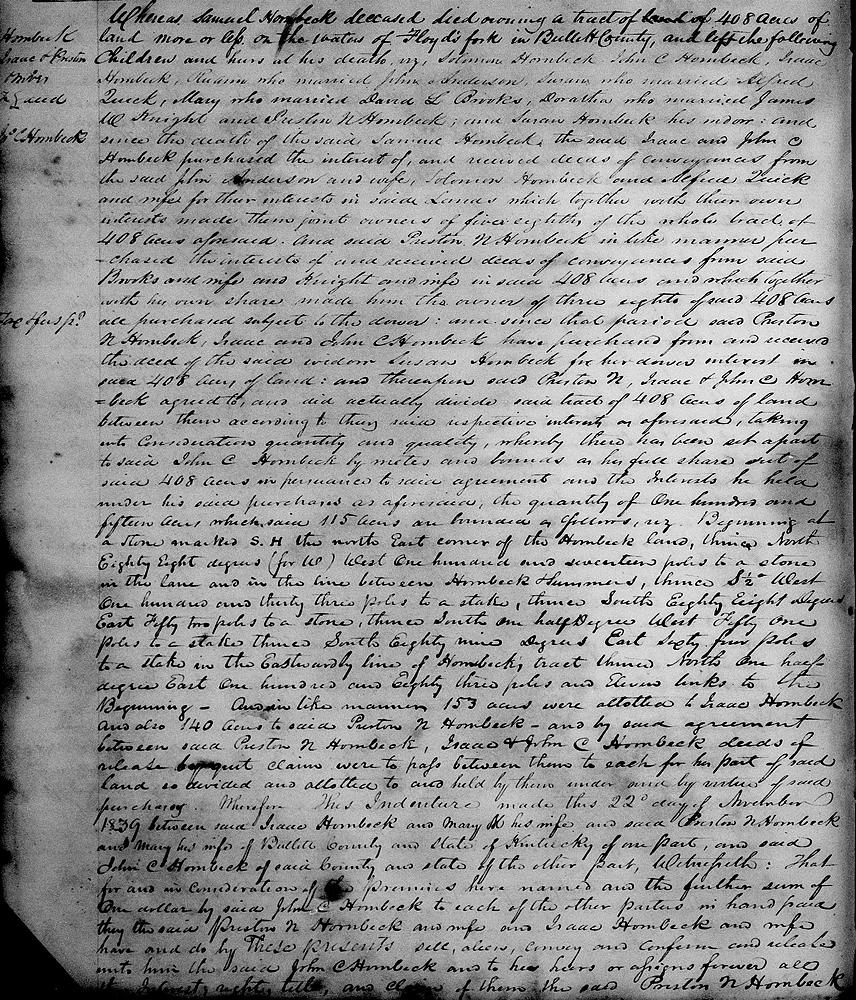 Hornbeck
Isaac & Preston
& wives
To } deed
Jno C Hornbeck
Tax & fees pd
Whereas Samuel Hornbeck deceased died owning a tract of land of 408 Acres of
land more or less on the waters of Floyds fork in Bullitt County, and left the following
Children and heirs at his death, viz, Solomon Hornbeck John C Hornbeck, Isaac
Hornbeck, who married John Anderson, Susan who married Alfred
Quick, Mary who married David L Brooks, Doratha who married James
W Knight and Preston N Hornbeck; and Susan Hornbeck his widow: and
since the death of the said Samuel Hornbeck, the said Isaac and John C
Hornbeck purchased the interest of, and received deeds of conveyances from
the said John Anderson and wife, Solomon Hornbeck and Alfred Quick
and wife for their interests in said Lands which together with their own
interests made them joint owners of five eighths of the whole tract of
408 acres aforesaid. And said Preston N Hornbeck in like manner pur
-chased the interests of and received deeds of conveyances from said
Brooks and wife and Knight and wife in said 408 acres and which together
with his own share made him the owner of three eights of said 408 acres
all purchased subject to the dower: and since that period said Preston
N Hornbeck, Isaac and John C Hornbeck have purchased from and received
the deed of the said widow Susan Hornbeck for her dower interest in
said 408 Acres of land: and thereupon said Preston N, Isaac & John C Horn
=beck agreed to, and did actually divide said tract of 408 Acres of land
between them according to their said respective interests as aforesaid, taking
into Consideration quantity and quality, whereby there has been set apart
to said John C Hornbeck by metes and bounds as his full share out of
said 408 acres in pursuance to said agreement and the Interests he held
under his said purchases as aforesaid, the quantity of One hundred and
fifteen Acres, which said 115 acres are bounded as follows, viz. Beginning at
a Stone marked S. H the north East corner of the Hornbeck land, thence North
Eighty Eight degrees (for W) West One hundred and seventeen poles to a stone
in the lane and in the line between Hornbeck & Summers, thence S ½° West
One hundred and thirty three poles to a stake, thence South Eighty Eight Degrees
East Fifty two poles to a stone, thence South one half Degree West Fifty One
Poles to a stake thence South Eighty nine Degrees East Sixty four poles
to a stake in the Eastwardly line of Hornbecks tract thence North One half
degree East One hundred and Eighty three poles and Eleven links to the
Beginning – And in like manner, 153 acres were allotted to Isaac Hornbeck
and also 140 acres to said Preston N Hornbeck – and by said agreement
between said Preston N Hornbeck, Isaac & John C Hornbeck deeds of
release by quit claim were to pass between them to each for his part of said
land so divided and allotted to and held by them under and by virtue of said
purchases. Wherefore This Indenture made this 22d day of November
1839 between said Isaac Hornbeck and Mary his wife and said Preston N Hornbeck
and Mary his wife of Bullitt County and State of Kentucky of one part, and said
John C Hornbeck of said County and state of the other part, Witnesseth: That
for and in Consideration of the premises here named and the further sum of
One dollar by said John C Hornbeck to each of the other parties in hand paid
they the said Preston N Hornbeck and wife and Isaac Hornbeck and wife
have and do by These presents sell, alien, convey and Confirm and release
unto him the said John C Hornbeck and to his heirs or assigns forever all
the Interest, right, title, and claim of them the said Preston N Hornbeck